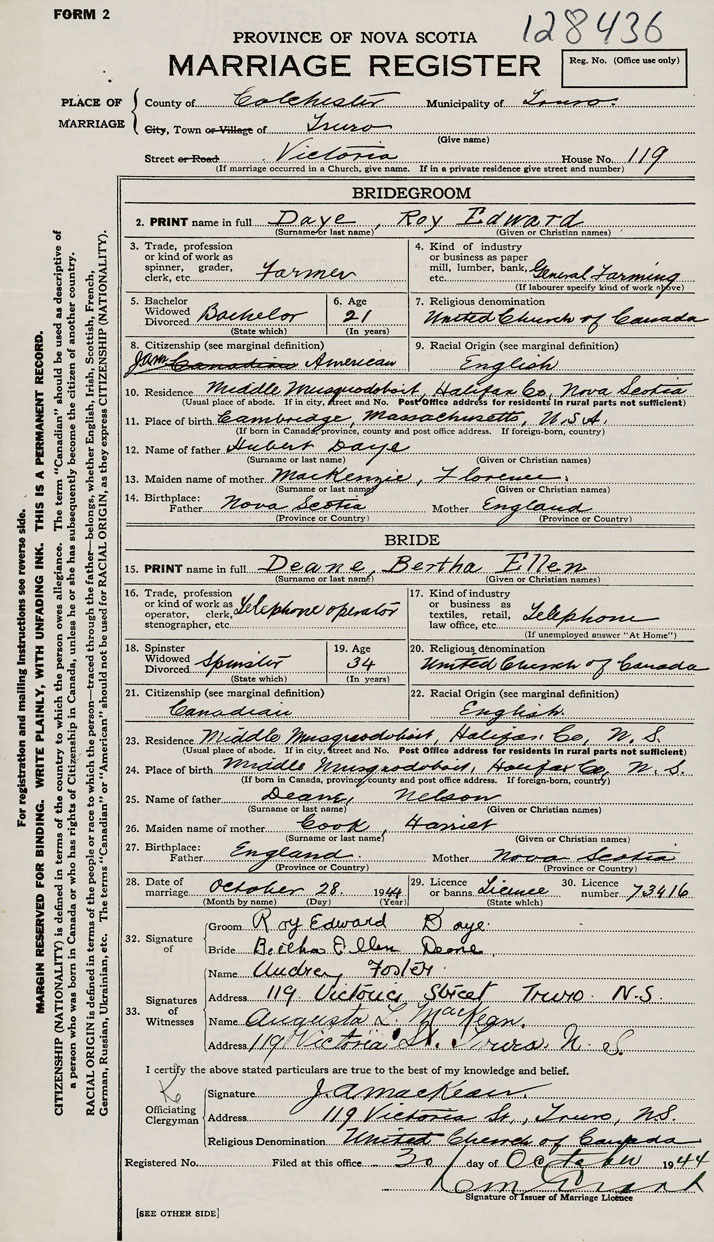 FORM 2
128436
PROVINCE OF NOVA SCOTIA
MARRIAGE REGISTER
Reg. No. (Office use only)
PLACE OF MARRIAGE
County of Colchester Municipality of Truro.
City, Town or Village of Truro
(Give name)
Street or Road Victoria House No. 119
(If marriage occurred in a Church, give name. If in a private residence give street and number)
BRIDEGROOM
2. PRINT name in full Daye, Roy Edward
(Surname or last name) (Given or Christian names)
3. Trade, profession or kind of work as spinner, grader, clerk, etc. Farmer
4. Kind of industry or business as paper mill, lumber, bank, etc. General Farming
(If labourer specify kind of work above)
5. Bachelor Widowed Divorced Bachelor
(State which)
6. Age 21
(In years)
7. Religious denomination
United Church of Canada
8. Citizenship (see marginal definition)
Canadian American
9. Racial Origin (see marginal definition)
English
10. Residence Middle Musquodoboit, Halifax Co, Nova Scotia
(Usual place of abode. If in city, street and No. Post Office address for residents in rural parts not sufficient)
11. Place of birth Cambridge, Massachusetts, U.S.A.
(If born in Canada, province, county and post office address. If foreign-born, country)
12. Name of father Hubert Daye
(Surname or last name) (Given or Christian names)
13. Maiden name of mother MacKenzie, Florence.
(Surname or last name) (Given or Christian names)
14. Birthplace: Father Nova Scotia Mother England
(Province or Country) (Province or Country)
BRIDE
15. PRINT name in full Deane, Bertha Ellen
(Surname or last name) (Given or Christian names)
16. Trade, profession or kind of work as operator, clerk, stenographer, etc. Telephone operator
17. Kind of industry or business as textiles, retail, law office, etc. Telephone
(If unemployed answer "At Home")
18. Spinster Widowed Divorced Spinster
(State which)
19. Age 34
(In years)
20. Religious denomination
United Church of Canada
21. Citizenship (see marginal definition)
Canadian
22. Racial Origin (see marginal definition)
English.
23. Residence Middle Musquodoboit, Halifax Co, N. S.
(Usual place of abode. If in city, street and No. Post Office address for residents in rural parts not sufficient)
24. Place of birth Middle Musquodoboit, Halifax Co, N. S.
(If born in Canada, province, county and post office address. If foreign-born, country)
25. Name of father Deane, Nelson
(Surname or last name) (Given or Christian names)
26. Maiden name of mother Cook, Harriet
(Surname or last name) (Given or Christian names)
27. Birthplace: Father England. Mother Nova Scotia
(Province or Country) (Province or Country)
28. Date of marriage October 28. 1944
(Month by name) (Day) (Year)
29. Licence or banns Licence
(State which)
30. Licence number 73416
32. Signature of
Groom Roy Edward Daye
Bride Bertha Ellen Deane
33. Signatures of Witnesses
Name Audrey Foster
Address 119 Victoria Street Truro N.S.
Name Augusta L. MacKean.
Address 119 Victoria St. Truro. N. S.
I certify the above stated particulars are true to the best of my knowledge and belief.
Officiating Clergyman
Signature J. A. MacKean.
Address 119 Victoria St., Truro, N.S.
Religious Denomination United Church of Canada
Registered No. Filed at this office 30 day of October 1944
Signature of Issuer of Marriage Licence
[SEE OTHER SIDE]
For registration and mailing instructions see reverse side.
MARGIN RESERVED FOR BINDING. WRITE PLAINLY, WITH UNFADING INK. THIS IS A PERMANENT RECORD.
CITIZENSHIP (NATIONALITY) is defined in terms of the country to which the person owes allegiance. The term "Canadian" should be used as descriptive of
a person who was born in Canada or who has rights of Citizenship in Canada, unless he or she has subsequently become the citizen of another country.
RACIAL ORIGIN is defined in terms of the people or race to which the person—traced through the father—belongs, whether English, Irish, Scottish, French,
German, Russian, Ukrainian, etc. The terms "Canadian" or "American" should not be used for RACIAL ORIGIN, as they express CITIZENSHIP (NATIONALITY).